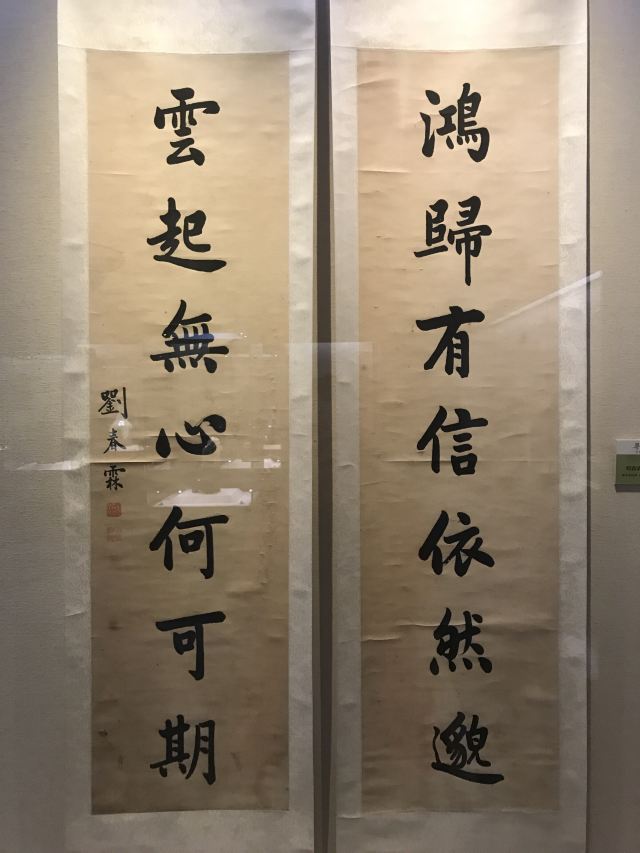 鴻歸有信依然邈
雲起無心何可期
劉春霖